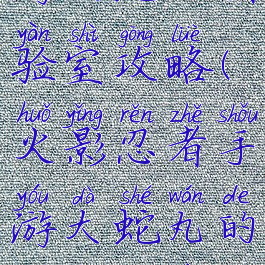 yàn shì gōng lüè
验室攻略(
huǒ yǐng rěn zhě shǒu
火影忍者手
yóu dà shé wán de
游大蛇丸的